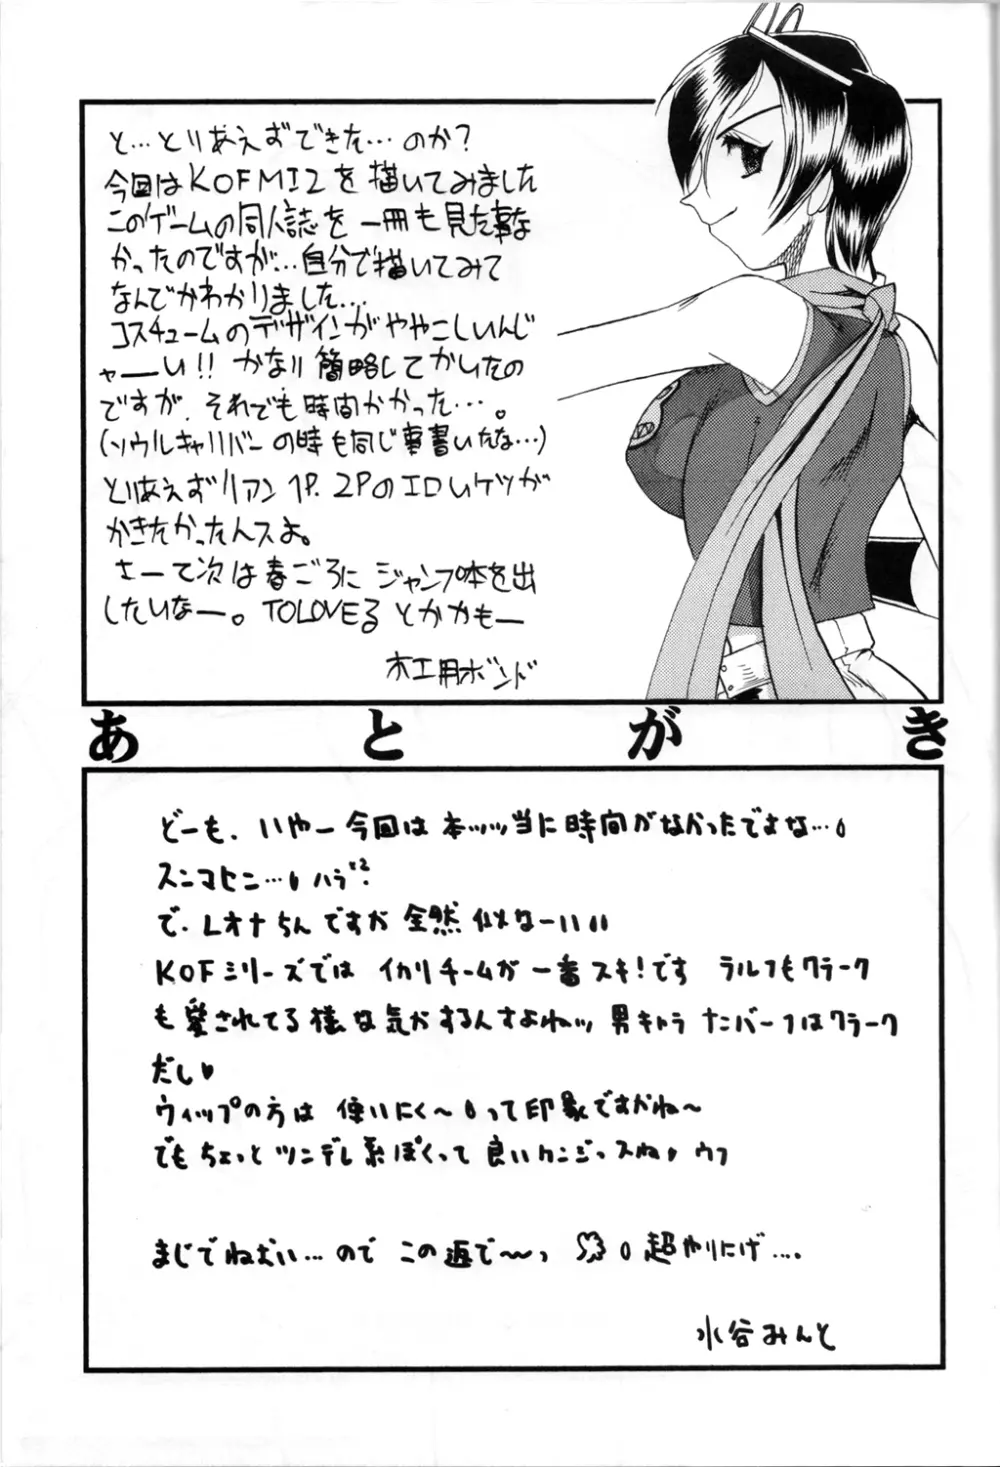 と…とりあえずできた…のか?
今回はKOFMI2を描いてみました
このゲームの同人誌を一冊も見た事な
かったのですが…自分で描いてみて
なんでかわかりました…
コスチュームのデザインがややこしいんじ
ゃーい!! かなり簡略してかいたの
ですが、それでも時間かかった…。
(ソウルキャリバーの時も同じ事書いたな…)
とりあえずリアン1P.2Pのエロいケツが
かきたかったんスよ。
さーて次は春ごろにジャンプ本を出
したいなー。TOLOVEるとかかもー
木工用ボンド
あとがき
どーも、いやー今回は本ッッ当に時間がなかったですよな…
スンマヒン…
で、レオナちんですが全然似なーい
KOFシリーズではイカリチームが一番スキ!です ラルフもクラーク
も愛されてる様な気がするんすよねッ 男キャラナンバー1はクラーク
だし♥
ウィップの方は使いにく〜って印象ですかね〜
でもちょっとツンデレ系ぽくって良いカンジっスね♥ウフ
まじでねむい…のでこの辺で〜っ 超やりにげ….
水谷みんと